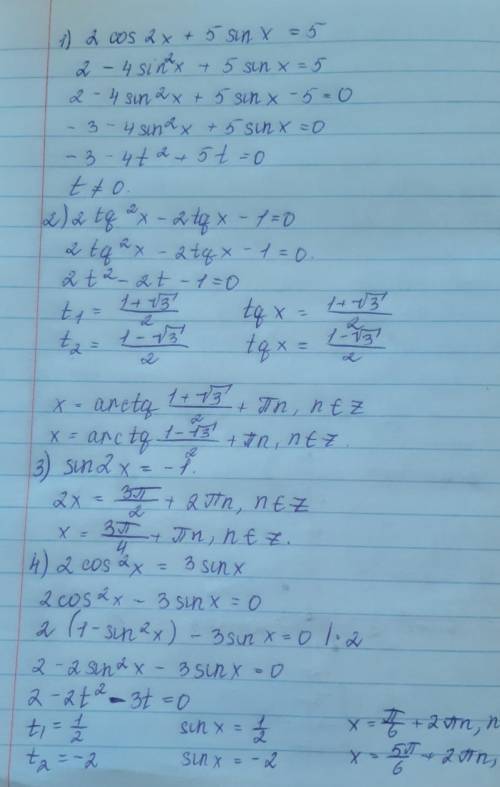 1) 2 cos 2x + 5 sin x = 5
2 - 4 sin²x + 5 sin x = 5
2 - 4 sin²x + 5 sin x - 5 = 0
- 3 - 4 sin²x + 5 sin x = 0
- 3 - 4t² + 5t = 0
t ≠ 0.
2) 2 tg²x - 2 tg x - 1 = 0
2 tg²x - 2 tg x - 1 = 0.
2t² - 2t - 1 = 0
t₁ = (1+√3)/2 tg x = (1+√3)/2
t₂ = (1-√3)/2 tg x = (1-√3)/2
x = arctg (1+√3)/2 + πn, n ∈ Z
x = arctg (1-√3)/2 + πn, n ∈ Z.
3) sin 2x = -1.
2x = 3π/2 + 2πn, n ∈ Z
x = 3π/4 + πn, n ∈ Z.
4) 2 cos²x = 3 sin x
2 cos²x - 3 sin x = 0
2 (1 - sin²x) - 3 sin x = 0 |·2
2 - 2 sin²x - 3 sin x = 0
2 - 2t² - 3t = 0
t₁ = 1/2 sin x = 1/2 x = π/6 + 2πn, n
t₂ = -2 sin x = -2 x = 5π/6 + 2πn,